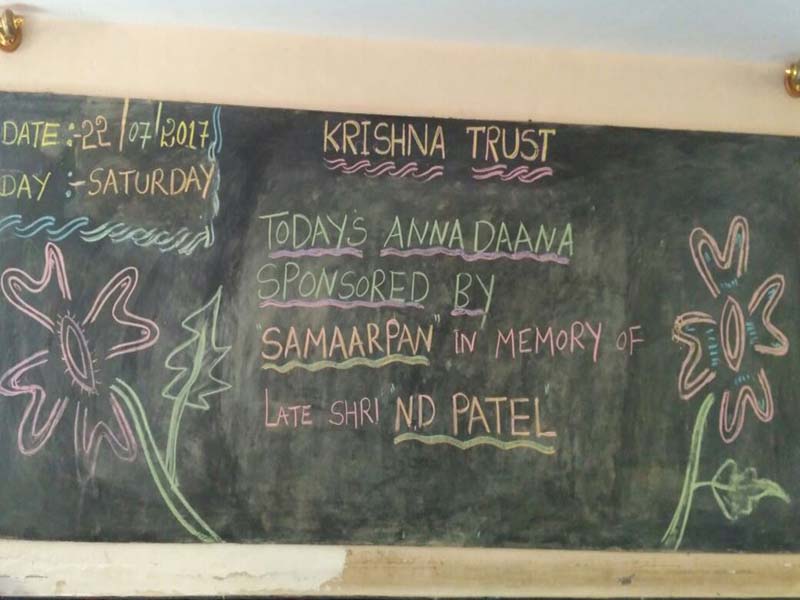 DATE :-22/07/2017
DAY :-SATURDAY
KRISHNA TRUST
TODAY'S ANNADAANA
SPONSORED BY
"SAMAARPAN" IN MEMORY OF
LATE SHRI "N.D PATEL"